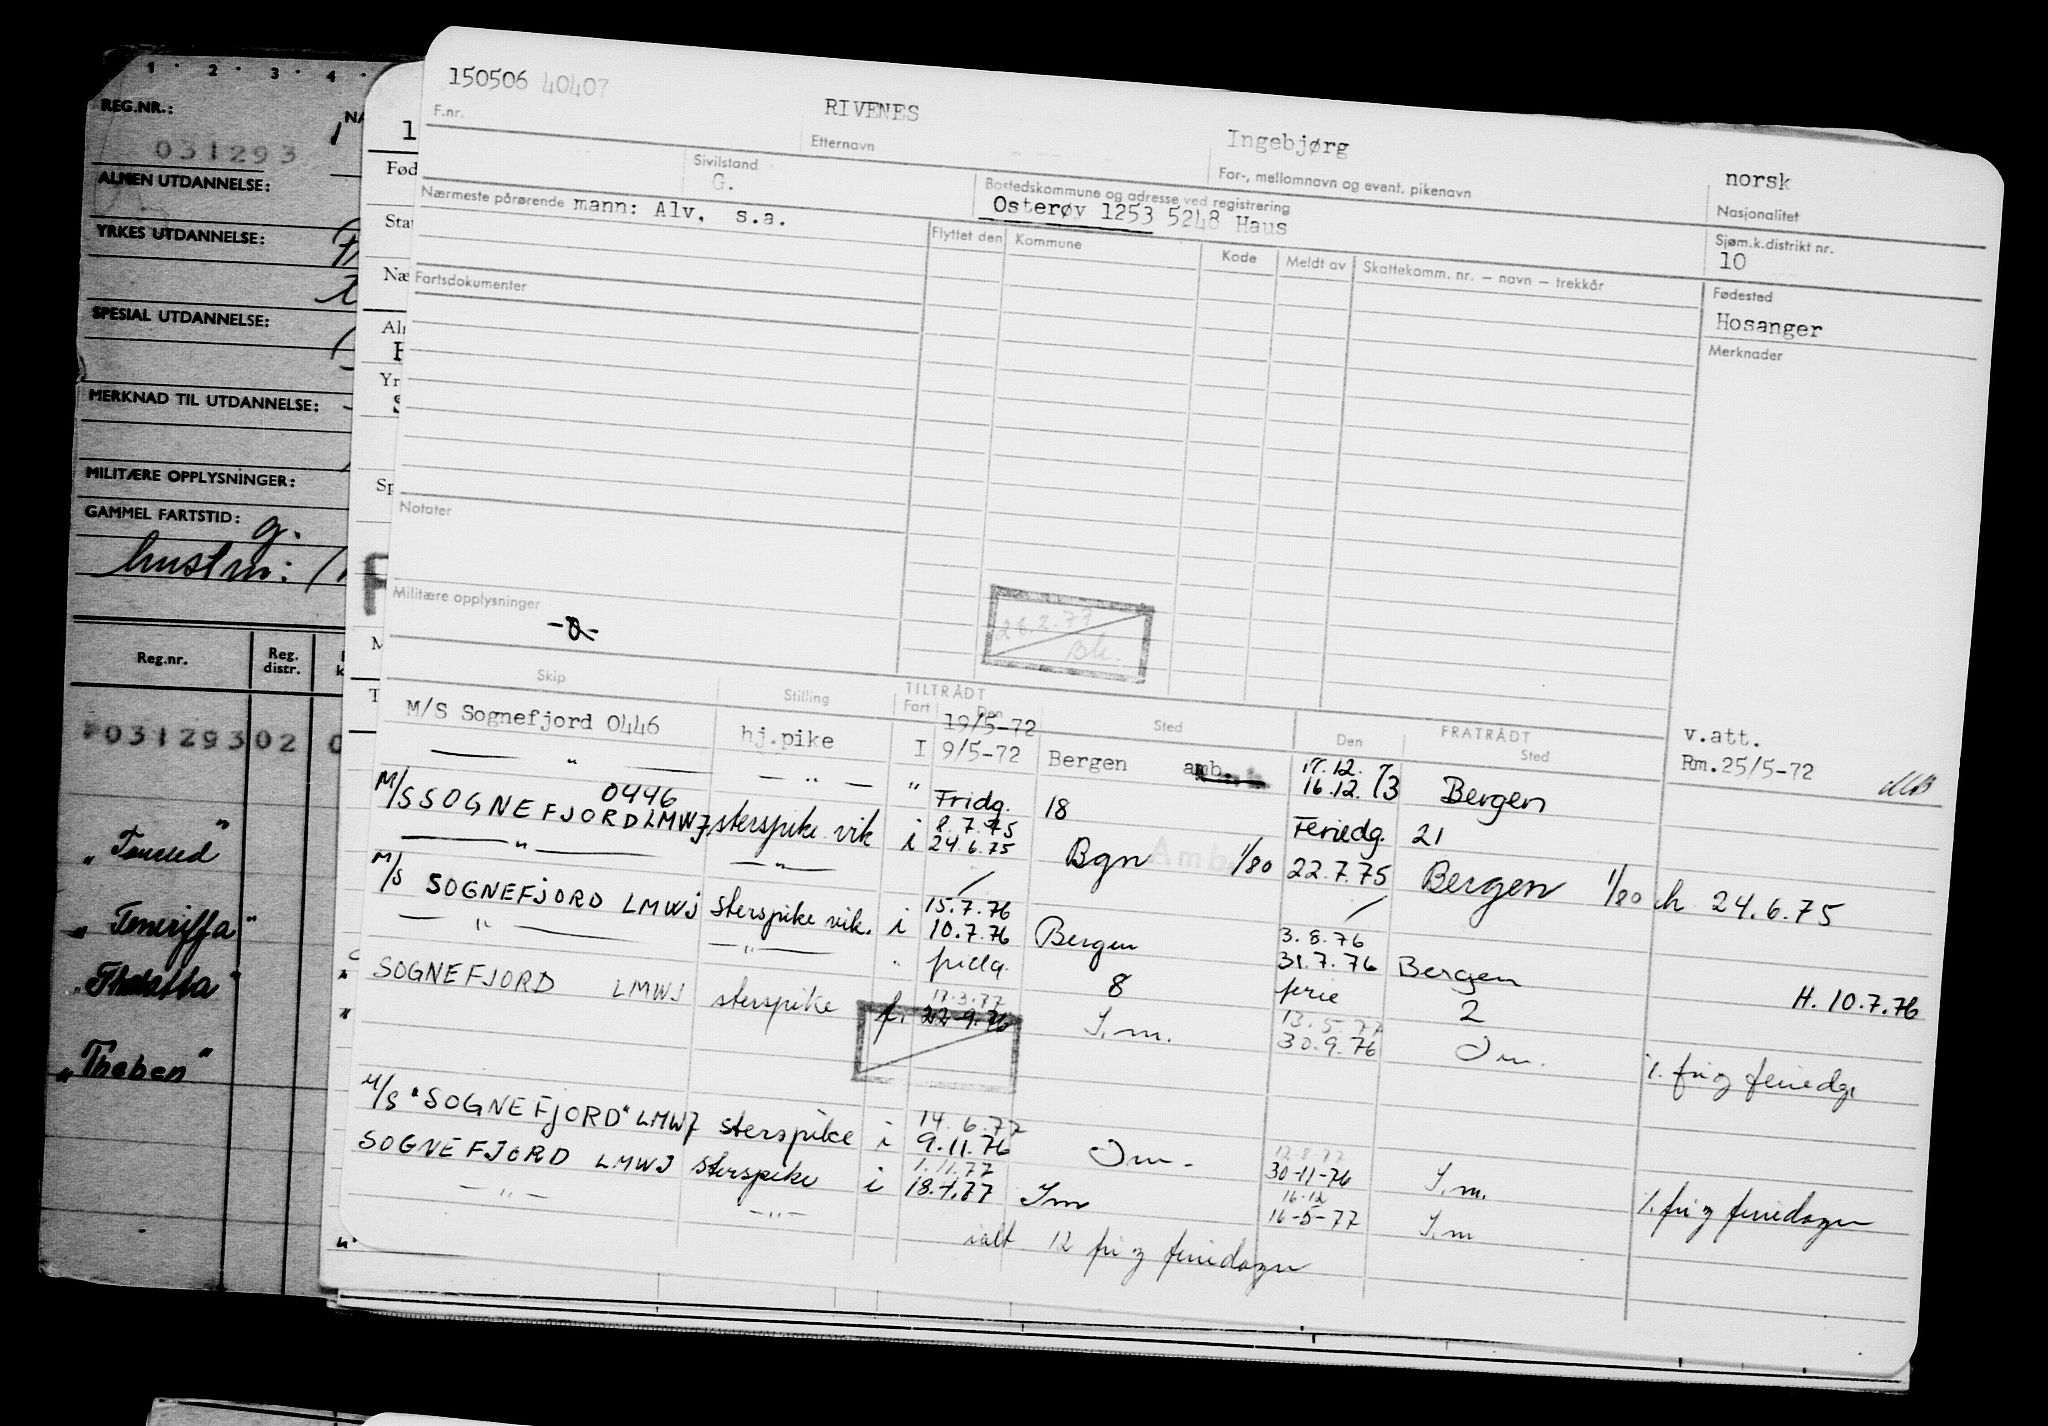 150506 40407
RIVENES
Ingebjørg
norsk
F.nr.
Etternavn
For-, mellomnavn og event. pikenavn
Nasjonalitet
Sivilstand
G.
Bostedskommune og adresse ved registrering
Osterøy 1253 5248 Haus
Sjøm.k.distrikt nr.
10
Nærmeste pårørende mann: Alv, s.a.
Flyttet den
Kommune
Kode
Meldt av
Skattekomm. nr. – navn – trekkår
Fødested
Hosanger
Fartsdokumenter
Merknader
Notater
Militære opplysninger
21.2.77
Bk.
Skip
Stilling
TILTRÅDT
Fart
Den
Sted
Den
FRATRÅDT
Sted
M/S Sognefjord 0446 hj.pike I 19/5-72
9/5-72 Bergen amb. 17.12.73
16.12. Bergen
v.att.
Rm.25/5-72
— " — — " — " Fridg. 18 Feriedg. 21
0446
M/S SOGNEFJORD LMWJ sterspike vik i 8.7.75
24.6.75 Bgn Amb. 1/80 22.7.75 Bergen 1/80 h 24.6.75
— " — — " —
M/S SOGNEFJORD LMWJ sterspike vik. i 15.7.76
10.7.76 Bergen 3.8.76
31.7.76 Bergen H. 10.7.76
— " — — " — " fridg. 8 ferie 2
SOGNEFJORD LMWJ sterspike f. 17.3.77
22.9.76 I.m. 13.5.77
30.9.76 Im. 1. fri og feriedg.
M/S "SOGNEFJORD" LMWJ sterspike i 14.6.77
9.11.76 Im. 12.8.77
30-11-76 I.m. 1. fri og feriedager
SOGNEFJORD LMWJ sterspike i 1.11.77
18.4.77 Im 16.12
16-5-77 I.m
— " — — " — ialt 12 fri og feriedager
1 2 3 4
REG.NR.:
NA
031293
ALMEN UTDANNELSE:
YRKES UTDANNELSE:
SPESIAL UTDANNELSE:
MERKNAD TIL UTDANNELSE:
MILITÆRE OPPLYSNINGER:
GAMMEL FARTSTID:
g.
hustru:
Reg.nr.
Reg. distr.
031293 02 0
"
"Teneriffa"
"Thalatta"
"Theben"
1
Fød
Sta
Næ
Alm
Yr
Sp
M
T